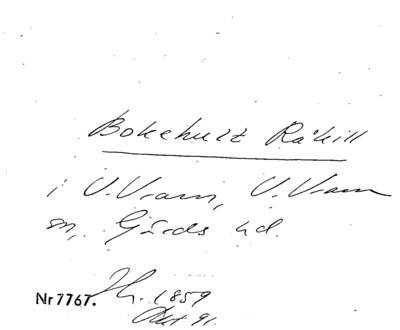 Bokehult Råkill
i V. Vram, V. Vram
sn, Gärds hd.
1859
Nr 7767.
Akt 91.